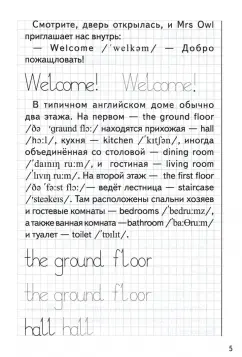 Смотрите, дверь открылась, и Mrs Owl
приглашает нас внутрь:
— Welcome /ˈwelkəm/ — Добро
пожаловать!
Welcome! Welcome!
В типичном английском доме обычно
два этажа. На первом — the ground floor
/ðə ˈɡraund flɔ:/ находятся прихожая — hall
/hɔ:l/, кухня — kitchen /ˈkɪtʃən/, иногда
объединённая со столовой — dining room
/ˈdaɪnɪŋ ru:m/, и гостиная — living room
/ˈlɪvɪŋ ru:m/. На второй этаж — the first floor
/ðə ˈfɜ:st flɔ:/ — ведёт лестница — staircase
/ˈsteəkeɪs/. Там расположены спальни хозяев
и гостевые комнаты — bedrooms /ˈbedru:mz/,
а также ванная комната —bathroom /ˈba:θru:m/
и туалет — toilet /ˈtɔɪlɪt/.
the ground floor
the ground floor
hall hall
5